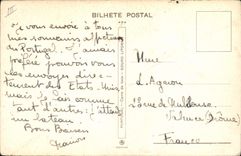 BILHETE POSTAL
Je vous envoie à tous
mes souvenirs affectueux
du Portugal. J'aurais
préféré pouvoir vous
les envoyer directement
des États-Unis
mais je fais comme
tant d'autres: j'attends
un bateau.
Bons Baisers
Mme
L. Ageron
rue de Mulhouse
Valence (Drôme)
France